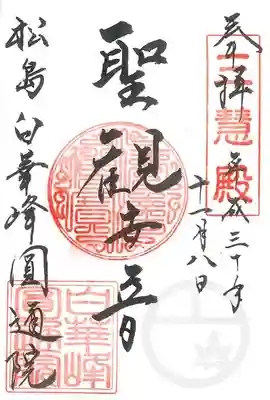 奉拝
三慧殿
平成三十年
十一月八日
聖觀世音
松島白華峰圓通院
白華峰
圓通院